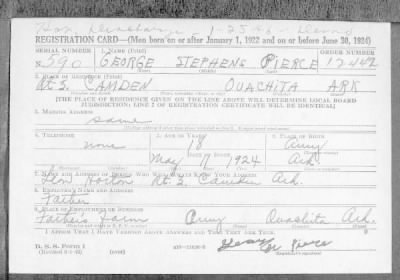 Hon Discharge 1-25-46
REGISTRATION CARD—(Men born on or after January 1, 1922 and on or before June 30, 1924)
SERIAL NUMBER 1. NAME (Print) ORDER NUMBER
N.590 GEORGE STEPHENS PIERCE 12442
(First) (Middle) (Last)
2. PLACE OF RESIDENCE (Print)
Rt. 2. CAMDEN OUACHITA ARK
[THE PLACE OF RESIDENCE GIVEN ON THE LINE ABOVE WILL DETERMINE LOCAL BOARD
JURISDICTION; LINE 2 OF REGISTRATION CERTIFICATE WILL BE IDENTICAL]
3. MAILING ADDRESS
Same
4. TELEPHONE 5. AGE IN YEARS 6. PLACE OF BIRTH
none 18
May 1924 Ark.
7. NAME AND ADDRESS OF PERSON WHO WILL ALWAYS KNOW YOUR ADDRESS
Horton Rt. 2. Camden Ark.
8. EMPLOYER'S NAME AND ADDRESS
Father
9. PLACE OF EMPLOYMENT OR BUSINESS
Fathers Farm Ouachita Ark.
I AFFIRM THAT I HAVE VERIFIED ABOVE ANSWERS AND THAT THEY ARE TRUE.
D. S. S. Form 1 Pierce